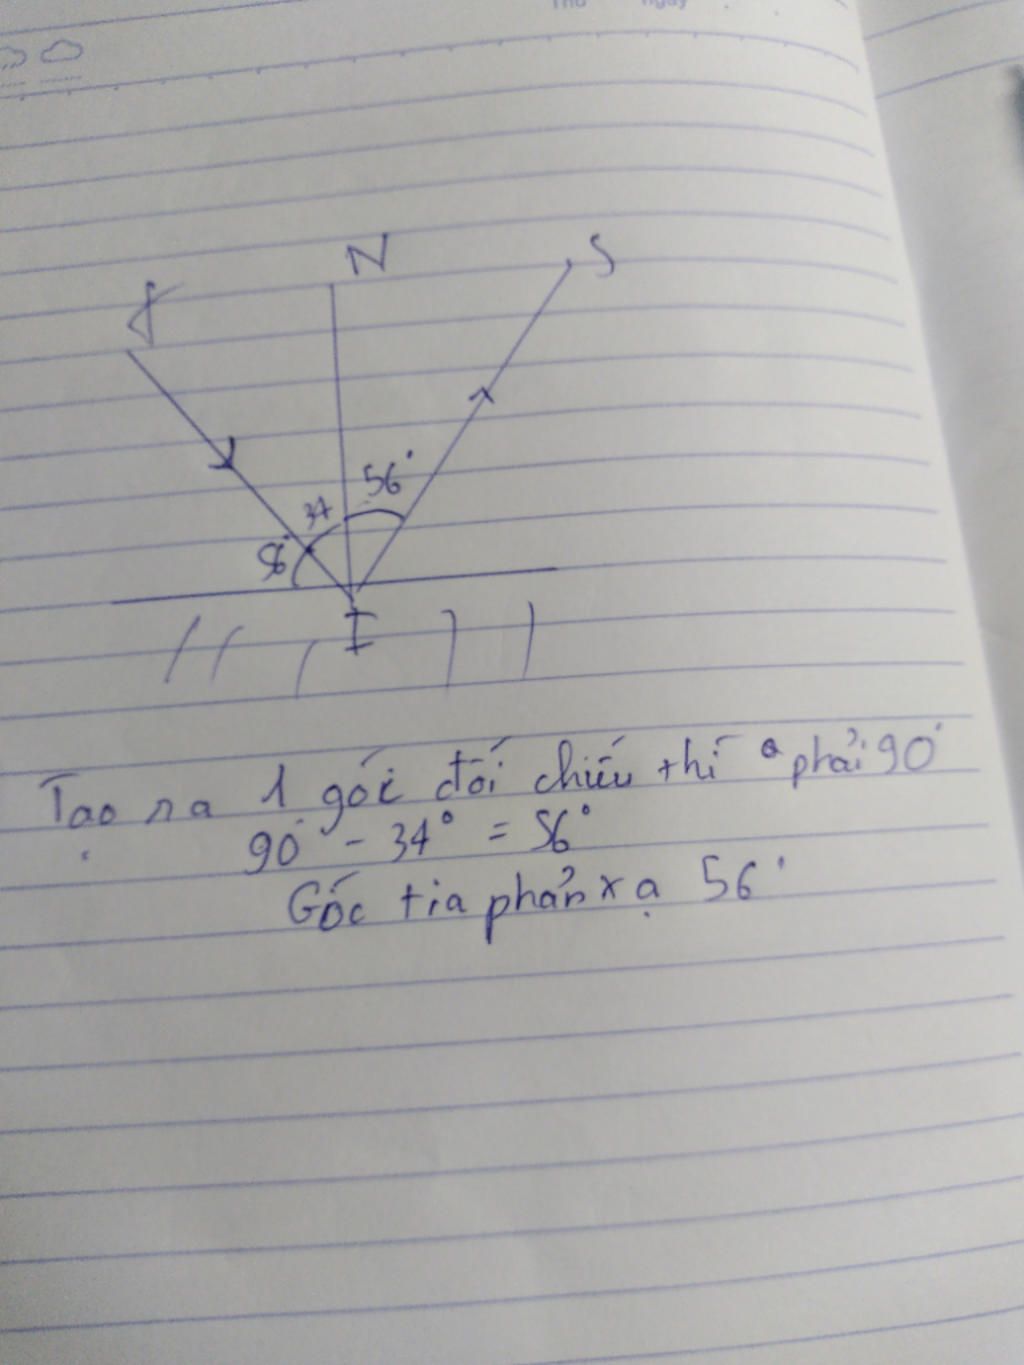 Thứ ngày
N
S
56°
34
I
Tạo ra 1 góc đối chiếu thì phải 90°
90° - 34° = 56°
Góc tia phản xạ 56°